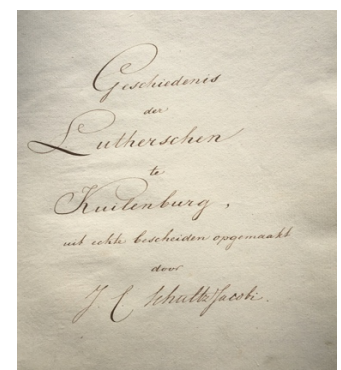 Geschiedenis
der
Lutherschen
te
Kuilenburg,
uit echte bescheiden opgemaakt
door
J C Schultz Jacobi.